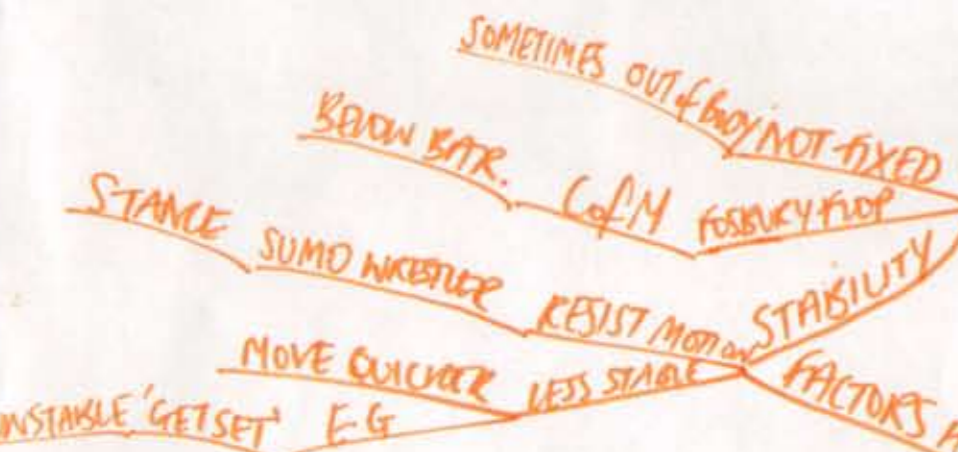 SOMETIMES OUT of BODY NOT FIXED
BELOW BAR. CofM FOSBURY FLOP
STANCE SUMO WRESTLER RESIST MOTION STABILITY
MOVE QUICKER LESS STABLE FACTORS
UNSTABLE 'GET SET' EG